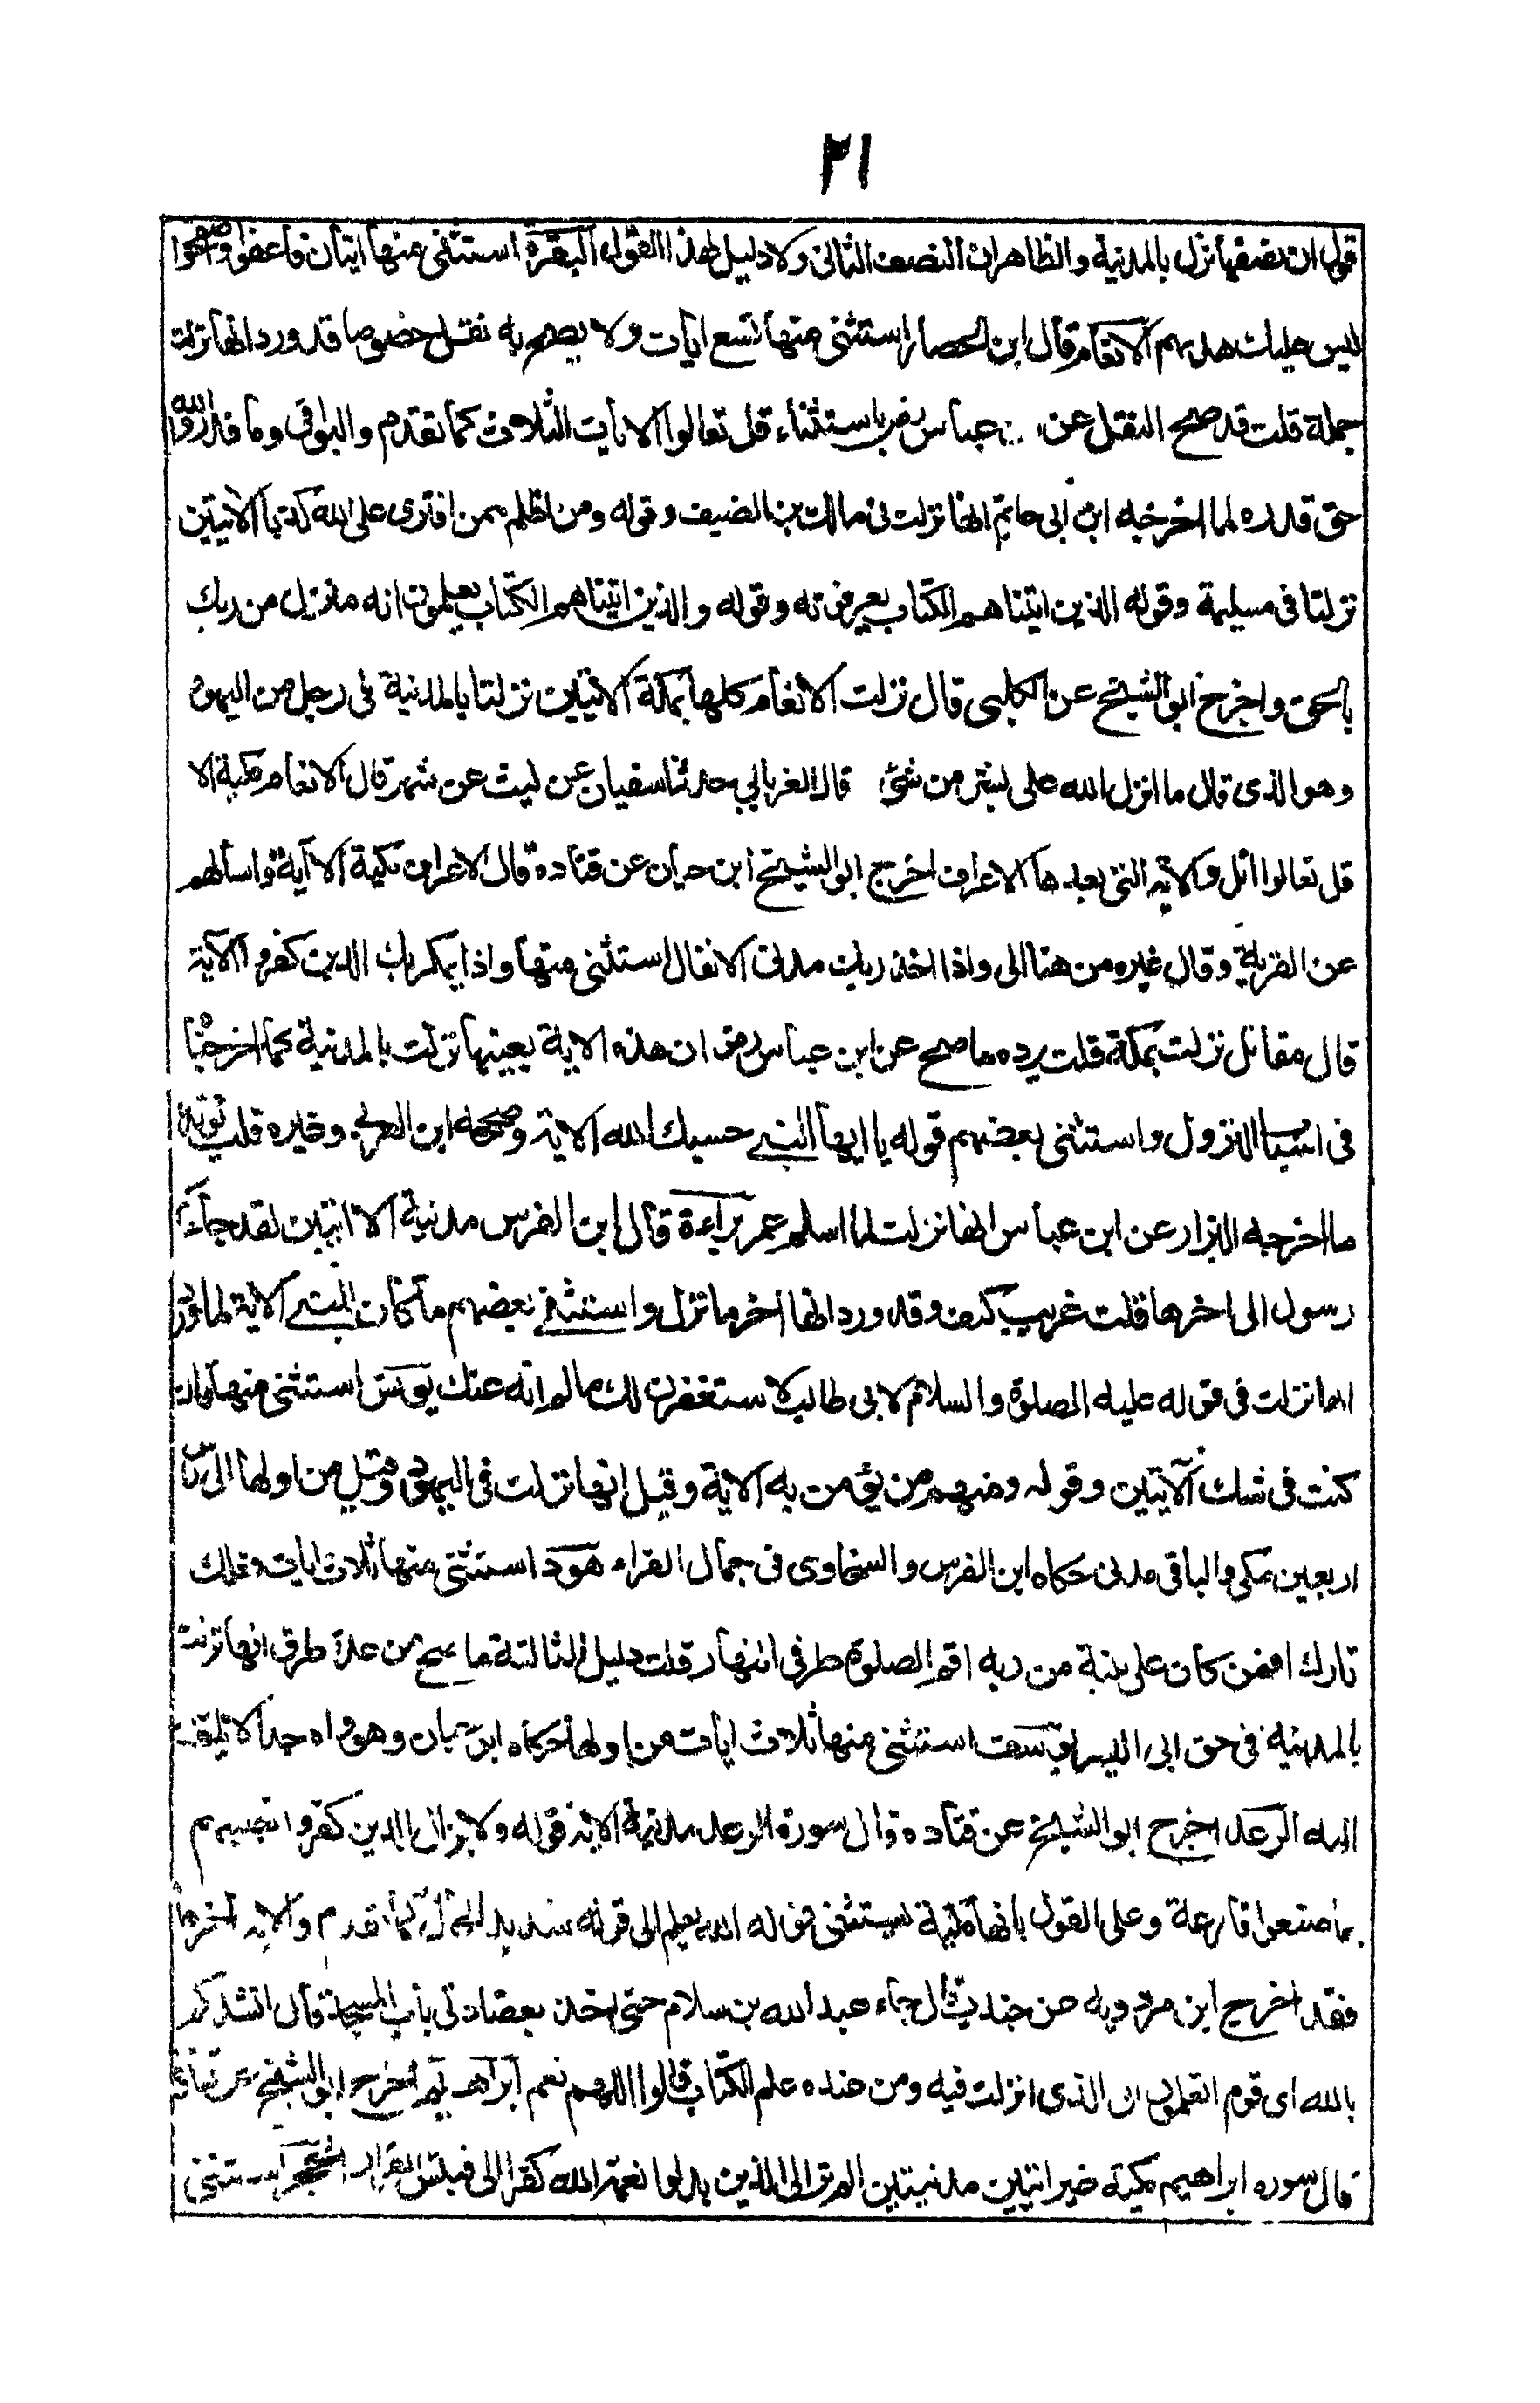 ٢١
قول ان نصفها نزل بالمدنية والظاهر ان النصف الثانى ولا دليل لهذا القول البقرة استثنى منها ايتان فاعفوا واصفحوا
ليس عليك هداهم الانعام قال ابن الحصار استثنى منها تسع ايات ولا يصح به نقل خصوصا قد ورد انها نزلت
جملة قلت قد صح النقل عن عباس رض باستثناء قل تعالوا الايات الثلاث كما تقدم والبواقى وما قدروا الله
حق قدره لما اخرجه ابن ابى حاتم انها نزلت فى مالك بن الضيف وقوله ومن اظلم ممن افترى على الله كذبا الآيتين
نزلتا فى مسيلمة وقوله الذين اتيناهم الكتاب يعرفونه وقوله والذين اتيناهم الكتاب يعلمون انه منزل من ربك
بالحق واخرج ابو الشيخ عن الكلبى قال نزلت الانعام كلها بمكة الا آيتين نزلتا بالمدنية فى رجل من اليهود
وهو الذى قال ما انزل الله على بشر من شئ قال الفريابي حدثنا سفيان عن ليث عن شهر قال الانعام مكية الا
قل تعالوا اتل والآية التى بعدها الاعراف اخرج ابو الشيخ ابن حيان عن قتادة قال الاعراف مكية الا آية واسألهم
عن القرية وقال غيره من هنا الى واذا اخذ ربك مدنى الانفال استثنى منها واذ يمكر بك الذين كفروا الآية
قال مقاتل نزلت بمكة قلت يرده ما صح عن ابن عباس رض ان هذه الاية بعينها نزلت بالمدنية كما اخرجنا
فى اسباب النزول واستثنى بعضهم قوله يا ايها النبي حسبك الله الاية وصححه ابن العربي وغيره قلت يؤيده
ما اخرجه البزار عن ابن عباس انها نزلت لما اسلم عمر براءة قال ابن الفرس مدنية الا ايتين لقد جاءكم
رسول الى اخرها قلت غريب كيف وقد ورد انها آخر ما نزل واستثنى بعضهم ما كان للنبي الاية لما ورد
انها نزلت فى قوله عليه الصلوة والسلام لابى طالب لاستغفرن لك مالم انه عنك يونس استثنى منها فان
كنت فى شك الآيتين وقوله ومنهم من يؤمن به الاية وقيل انها نزلت فى اليهود وقيل من اولها الى راس
اربعين مكى والباقى مدنى حكاه ابن الفرس والسخاوى فى جمال القراء هود استثنى منها ثلاث ايات فلعلك
تارك افمن كان على بينة من ربه اقم الصلوة طرفى النهار قلت دليل الثالثة ما صح من عدة طرق انها نزلت
بالمدنية فى حق ابى اليسر يوسف استثنى منها ثلاث ايات من اولها حكاه ابو حيان وهو واه جدا لا يلتفت
اليه الرعد اخرج ابو الشيخ عن قتادة قال سورة الرعد مدنية الا آية قوله ولا يزال الذين كفروا تصيبهم
بما صنعوا قارعة وعلى القول بانها مكية يستثنى قوله الله يعلم الى قوله شديد المحال كما تقدم والآية آخرها
فقد اخرج ابن مردويه عن جندب قال جاء عبد الله بن سلام حتى اخذ بعضادتى باب المسجد قال انشدكم
بالله اى قوم اتعلمون ان الذى انزلت فيه ومن عنده علم الكتاب قالوا اللهم نعم ابراهيم اخرج ابو الشيخ عن قتادة
قال سوره ابراهيم مكية غير ايتين مدنيتين الم تر الى الذين بدلوا نعمة الله كفرا الى فبئس القرار الحجر استثنى